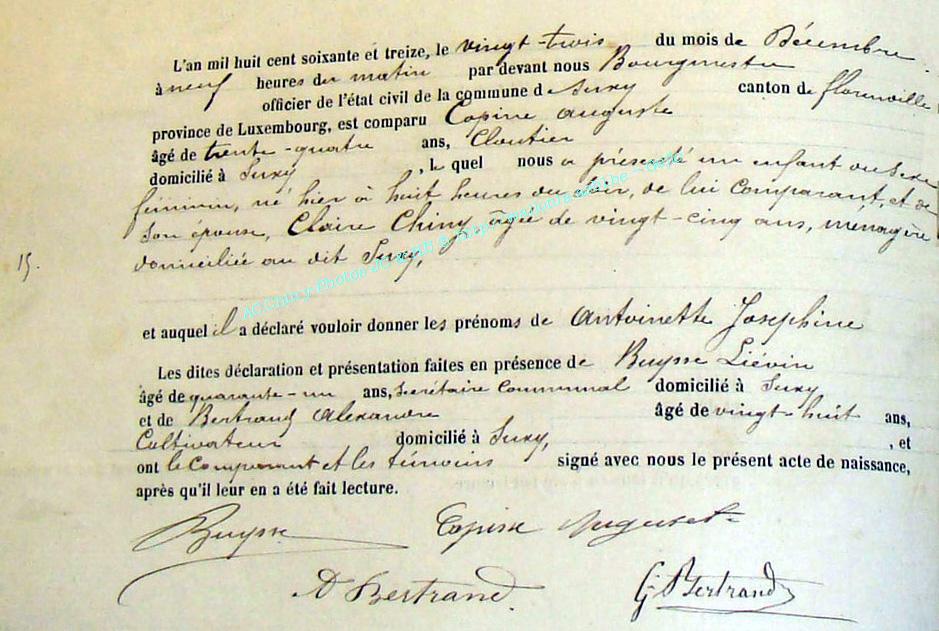 L'an mil huit cent soixante et treize, le vingt-trois du mois de Décembre
à neuf heures du matin par devant nous Bourgmestre
officier de l'état civil de la commune de Suxy canton de florenville
province de Luxembourg, est comparu Copine Auguste
âgé de trente-quatre ans, Cloutier
domicilié à Suxy, le quel nous a présenté un enfant du sexe
féminin, né hier à huit heures du soir, de lui comparant, et de
son épouse, Claire Chiny âgée de vingt-cinq ans, ménagère
domiciliée au dit Suxy,
15.
et auquel il a déclaré vouloir donner les prénoms de Antoinette Joséphine
Les dites déclaration et présentation faites en présence de Buysse Liévin
âgé de quarante-un ans, Secrétaire Communal domicilié à Suxy
et de Bertrand Alexandre âgé de vingt-huit ans,
Cultivateur domicilié à Suxy, , et
ont le Comparant et les témoins signé avec nous le présent acte de naissance,
après qu'il leur en a été fait lecture.
Buysse Copine Auguste
A Bertrand. G Bertrand